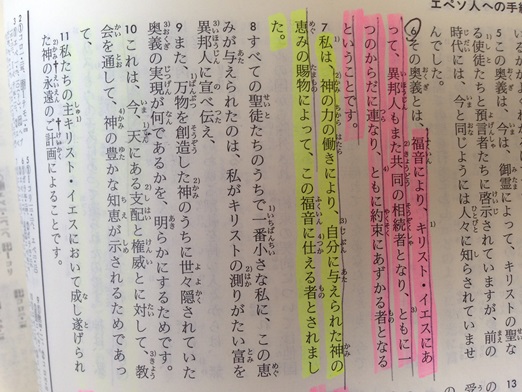 エペソ人への手紙
5 この奥義は、今は、御霊によって、キリストの聖な
る使徒たちと預言者たちに啓示されていますが、前の
時代には、今と同じようには人々に知らされていませ
んでした。
6 その奥義とは、福音により、キリスト・イエスにあ
って、異邦人もまた共同の相続者となり、ともに一
つのからだに連なり、ともに約束にあずかる者となる
ということです。
7 私は、神の力の働きにより、自分に与えられた神の
恵みの賜物によって、この福音に仕える者とされまし
た。
8 すべての聖徒たちのうちで一番小さな私に、この恵
みが与えられたのは、私がキリストの測りがたい富を
異邦人に宣べ伝え、
9 また、万物を創造した神のうちに世々隠されていた
奥義の実現が何であるかを、明らかにするためです。
10 これは、今、天にある支配と権威とに対して、教
会を通して、神の豊かな知恵が示されるためであっ
て、
11 私たちの主キリスト・イエスにおいて成し遂げられ
た神の永遠のご計画によることです。